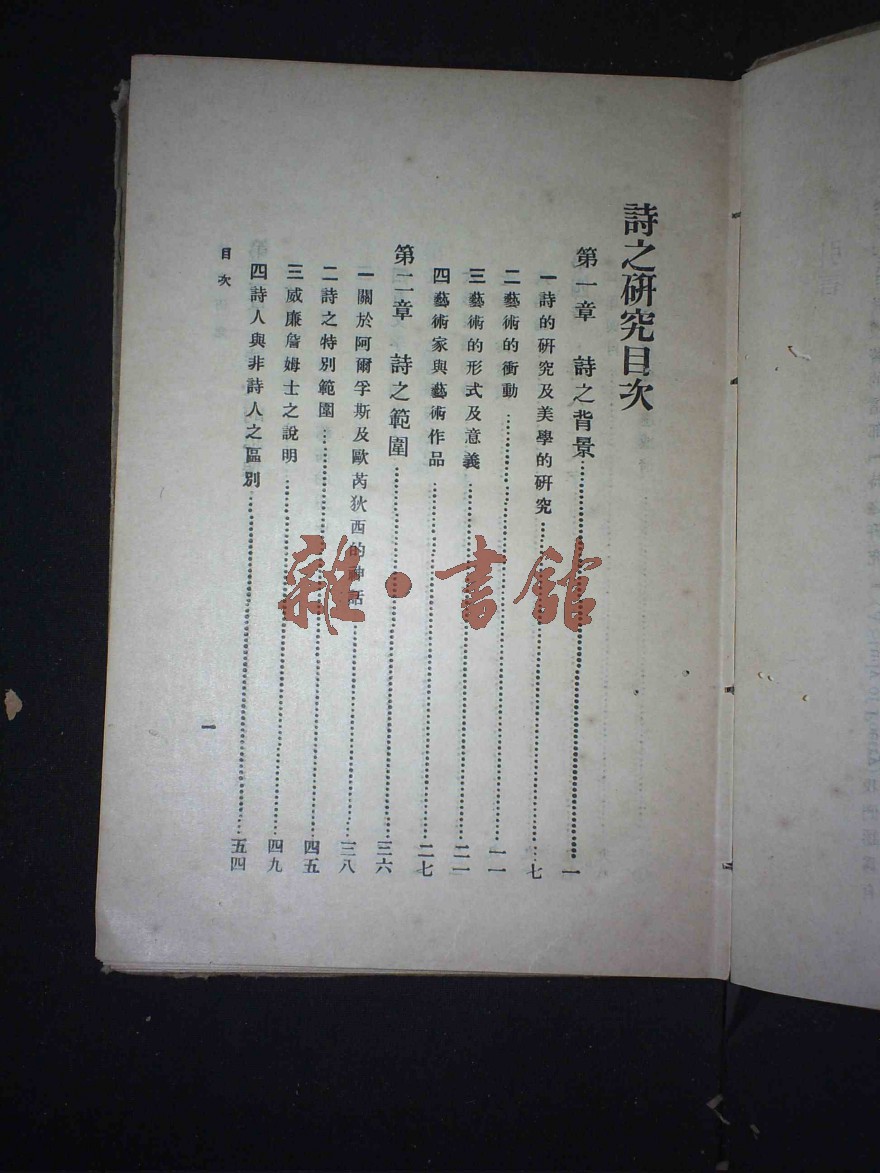 詩之研究目次
第一章 詩之背景……一
一 詩的研究及美學的研究……七
二 藝術的衝動……一一
三 藝術的形式及意義……二一
四 藝術家與藝術作品……二七
第二章 詩之範圍……三六
一 關於阿爾孚斯及歐芮狄西的神話……三八
二 詩之特別範圍……四五
三 威廉詹姆士之說明……四九
四 詩人與非詩人之區別……五四
目次
一
雜·書館
引言